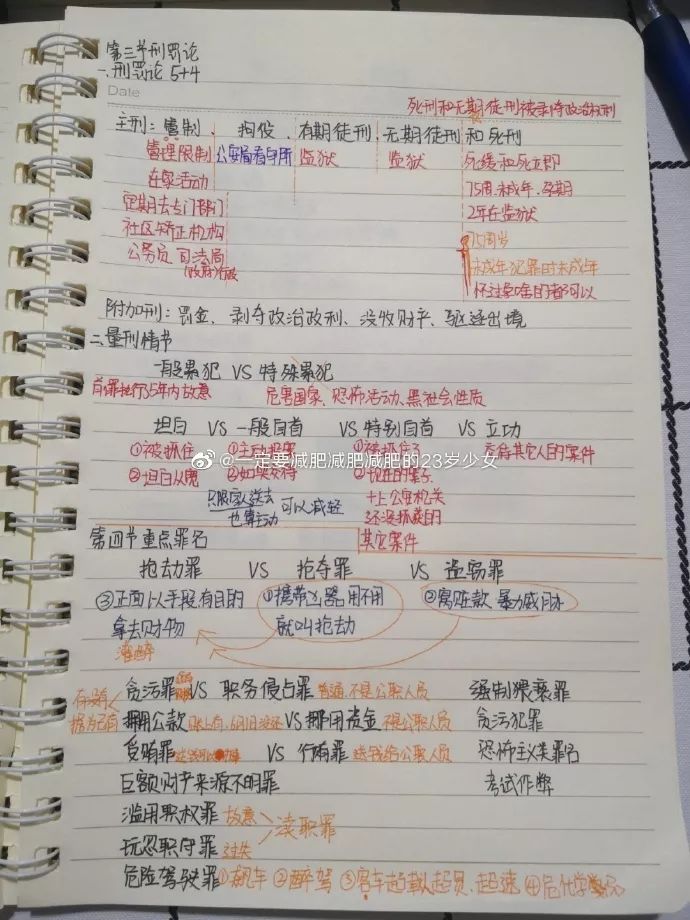 第三节刑罚论
一.刑罚论 5+4
Date
死刑和无期徒刑被剥夺政治权利
主刑：管制、拘役、有期徒刑、无期徒刑和死刑
管理限制 公安局看守所 监狱 监狱 死缓和死立即
在家活动 75周.未成年.孕期
定期去专门部门 2年在监狱
社区矫正机构 75周岁
公务员 司法局 未成年犯罪时未成年
(政府)行政 怀过孕啥的都可以
附加刑：罚金、剥夺政治政利、没收财产、驱逐出境
二.量刑情书
一般累犯 VS 特殊累犯
前罪执行5年内故意 危害国家、恐怖活动、黑社会性质
坦白 VS 一般自首 VS 特别自首 VS 立功
①被抓住 ①主动投案 ①被抓住了 交待其它人的案件
②坦白从宽 ②如实交待 ②现在的案子
只服家人送去 可以减轻 +上公安机关
也算主动 还没抓着的
其它案件
第四节重点罪名
抢劫罪 VS 抢夺罪 VS 盗窃罪
③正面以手段.有目的 ①携带凶器.用不用 ②窝赃款 暴力威胁
拿去财物 就叫抢劫
灌醉
贪污罪 VS 职务侵占罪 普通.不是公职人员 强制猥亵罪
据为己有 挪用公款 VS 挪用资金 不是公职人员 贪污犯罪
受贿罪 VS 行贿罪 送钱给公职人员 恐怖主义类罪名
巨额财产来源不明罪 考试作弊
滥用职权罪 故意 渎职罪
玩忽职守罪 过失
危险驾驶罪 ①飙车 ②醉驾 ③客车超载超员.超速 ④危化学品
@一定要减肥减肥减肥的23岁少女